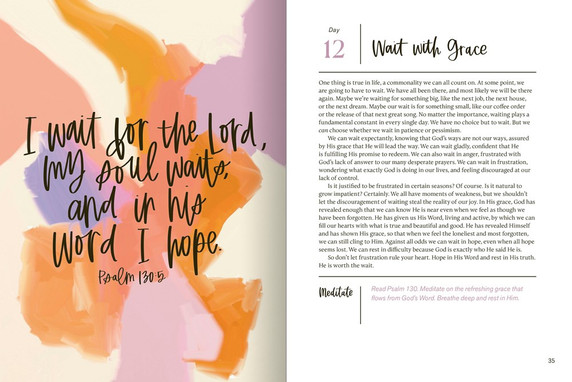 I wait for the Lord,
my soul waits
and in his
word I hope.
Psalm 130:5
Day
12
Wait with Grace
One thing is true in life, a commonality we can all count on. At some point, we
are going to have to wait. We have all been there, and most likely we will be there
again. Maybe we're waiting for something big, like the next job, the next house,
or the next dream. Maybe our wait is for something small, like our coffee order
or the release of that next great song. No matter the importance, waiting plays a
fundamental constant in every single day. We have no choice but to wait. But we
can choose whether we wait in patience or pessimism.
We can wait expectantly, knowing that God's ways are not our ways, assured
by His grace that He will lead the way. We can wait gladly, confident that He
is fulfilling His promise to redeem. We can also wait in anger, frustrated with
God's lack of answer to our many desperate prayers. We can wait in frustration,
wondering what exactly God is doing in our lives, and feeling discouraged at our
lack of control.
Is it justified to be frustrated in certain seasons? Of course. Is it natural to
grow impatient? Certainly. We all have moments of weakness, but we shouldn't
let the discouragement of waiting steal the reality of our joy. In His grace, God has
revealed enough that we can know He is near even when we feel as though we
have been forgotten. He has given us His Word, living and active, by which we can
fill our hearts with what is true and beautiful and good. He has revealed Himself
and has shown His grace, so that when we feel the loneliest and most forgotten,
we can still cling to Him. Against all odds we can wait in hope, even when all hope
seems lost. We can rest in difficulty because God is exactly who He said He is.
So don't let frustration rule your heart. Hope in His Word and rest in His truth.
He is worth the wait.
Meditate
Read Psalm 130. Meditate on the refreshing grace that
flows from God's Word. Breathe deep and rest in Him.
35